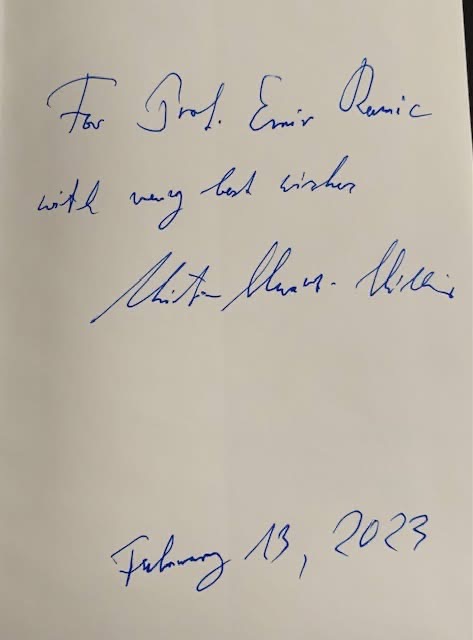 For Prof. Emir Ramic
with very best wishes
February 13, 2023